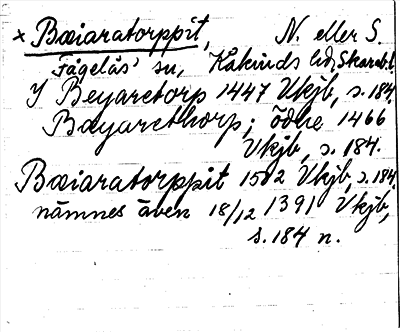 × Bæiaratorppit, N. eller S.
Fågelås' sn, Kåkinds hd, Skarab.l.
Y Beyaretorp 1447 Vkjb, s. 184.
Bæyarethorp; ödhe 1466
Vkjb, s. 184.
Bæiaratorppit 1502 Vkjb, s. 184.
nämnes även 18/12 1391 Vkjb,
s. 184 n.